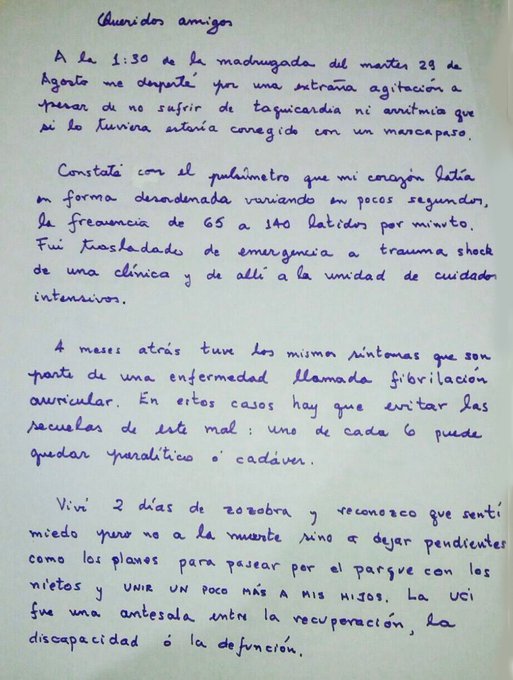 Queridos amigos
A la 1:30 de la madrugada del martes 29 de
Agosto me desperté por una extraña agitación a
pesar de no sufrir de taquicardia ni arritmia que
si lo tuviera estaría corregido con un marcapaso.
Constaté con el pulsímetro que mi corazón latía
en forma desordenada variando en pocos segundos,
la frecuencia de 65 a 140 latidos por minuto.
Fui trasladado de emergencia a trauma shock
de una clínica y de allí a la unidad de cuidados
intensivos.
4 meses atrás tuve los mismos síntomas que son
parte de una enfermedad llamada fibrilación
auricular. En estos casos hay que evitar las
secuelas de este mal: uno de cada 6 puede
quedar paralítico ó cadáver.
Viví 2 días de zozobra y reconozco que sentí
miedo pero no a la muerte sino a dejar pendientes
como los planes para pasear por el parque con los
nietos y UNIR UN POCO MÁS A MIS HIJOS. La UCI
fue una antesala entre la recuperación, la
discapacidad ó la defunción.